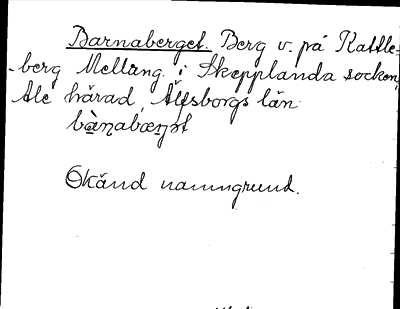 Barnaberget. Berg v. på Kattle=
-berg Mellang. i Skepplanda socken,
Ale härad, Älfsborgs län.
Okänd namngrund.